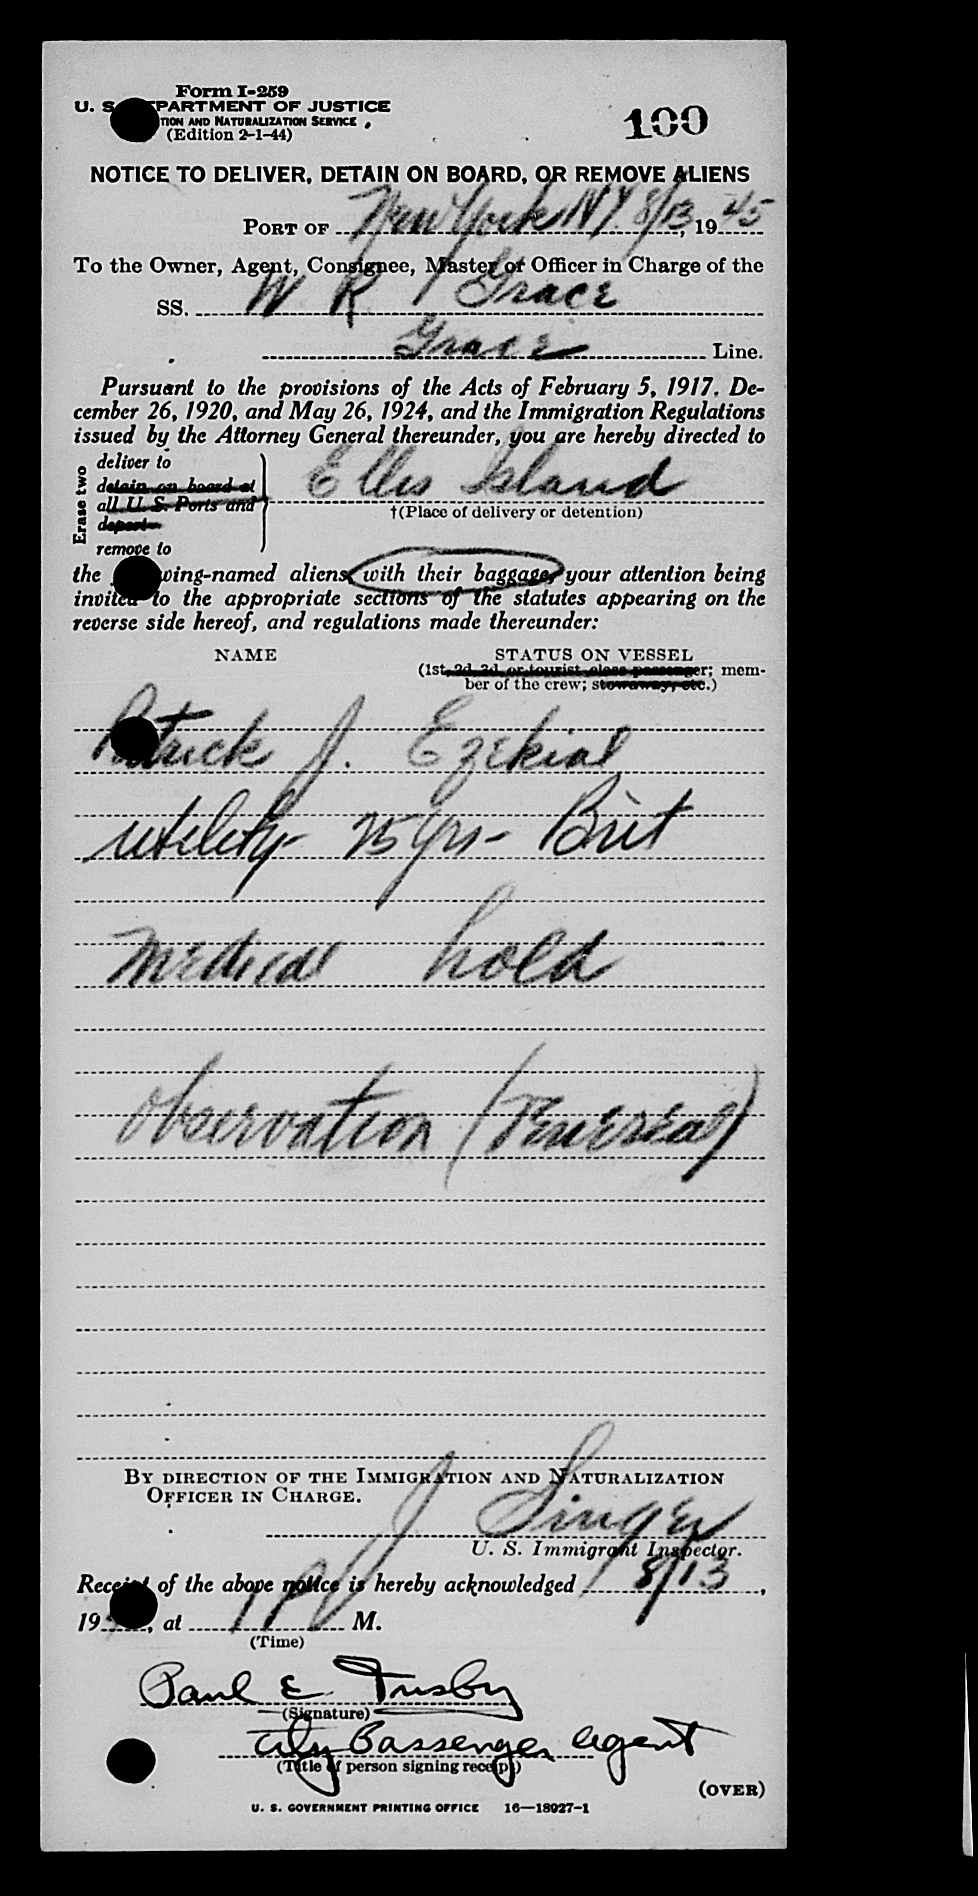 Form I-259
U. S. DEPARTMENT OF JUSTICE
IMMIGRATION AND NATURALIZATION SERVICE
(Edition 2-1-44)
100
NOTICE TO DELIVER, DETAIN ON BOARD, OR REMOVE ALIENS
PORT OF New York NY. 8/13, 1945
To the Owner, Agent, Consignee, Master or Officer in Charge of the
SS. W R Grace
Grace Line.
Pursuant to the provisions of the Acts of February 5, 1917. De-
cember 26, 1920, and May 26, 1924, and the Immigration Regulations
issued by the Attorney General thereunder, you are hereby directed to
Erase two
deliver to
detain on board at
all U. S. Ports and
deport
remove to
Ellis Island
†(Place of delivery or detention)
the following-named aliens, with their baggage, your attention being
invited to the appropriate sections of the statutes appearing on the
reverse side hereof, and regulations made thereunder:
NAME STATUS ON VESSEL
(1st, 2d, 3d, or tourist class passenger; mem-
ber of the crew; stowaway, etc.)
Patrick J. Ezekial
utility- 25 yrs- Brit
Medical hold
observation (Venereal)
BY DIRECTION OF THE IMMIGRATION AND NATURALIZATION
OFFICER IN CHARGE.
J Singer
U. S. Immigrant Inspector.
Receipt of the above notice is hereby acknowledged 8/13,
19, at 1 P M.
(Time)
Paul E
(Signature)
City Passenger agent
(Title of person signing receipt)
(OVER)
U. S. GOVERNMENT PRINTING OFFICE 16—18927-1